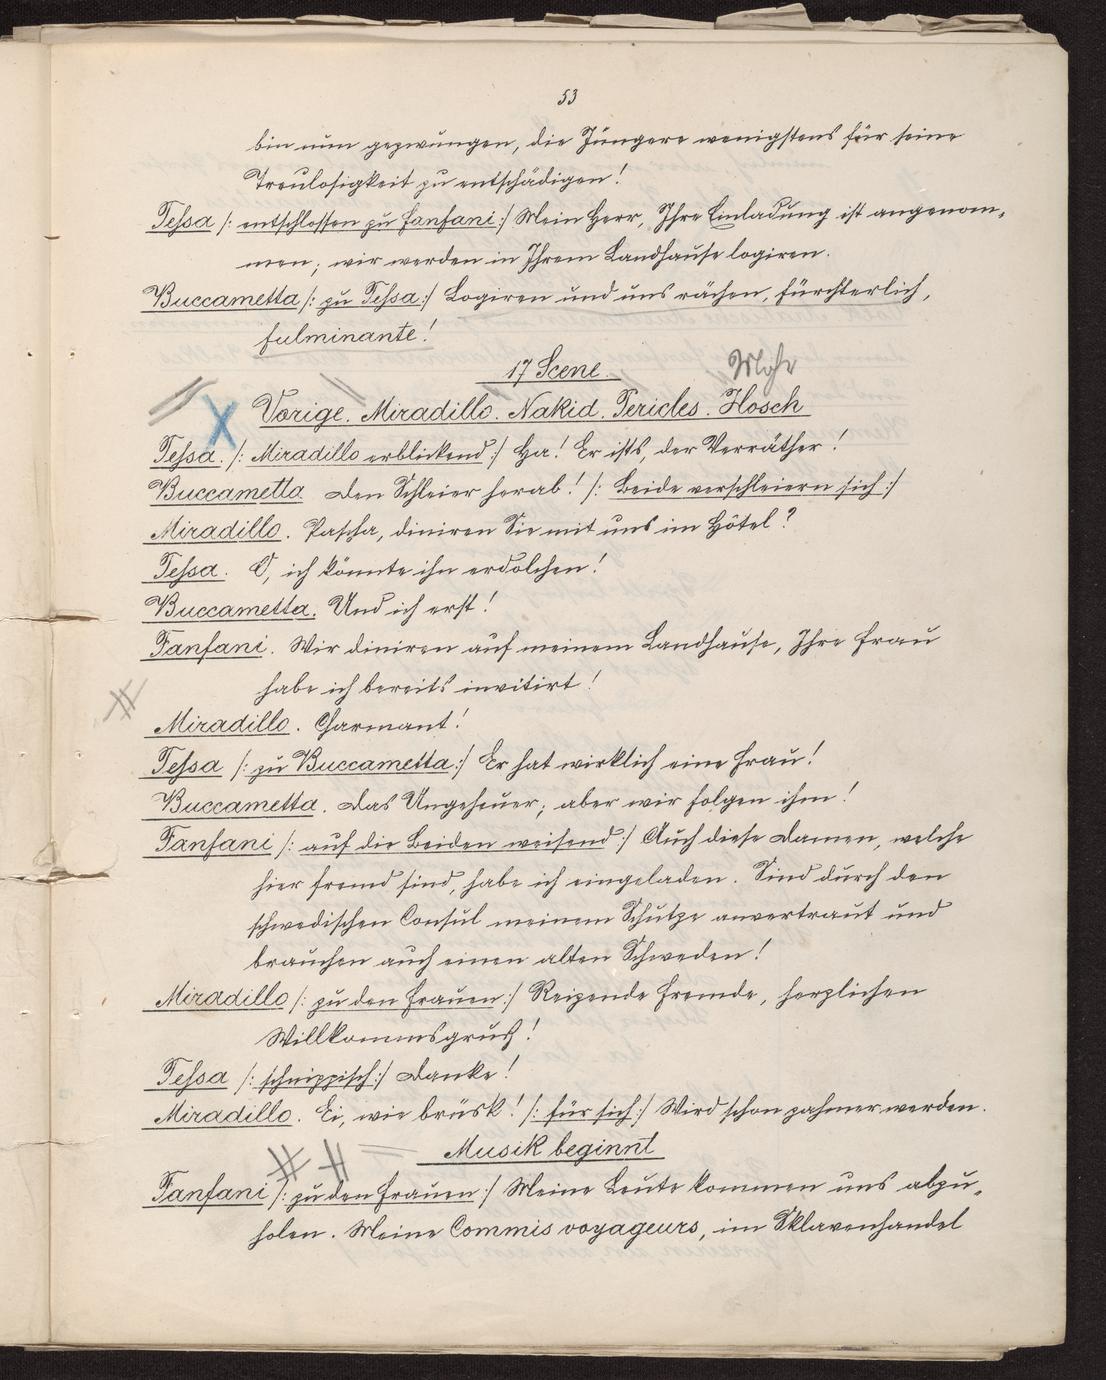 53
bin nun gezwungen, die Jüngere wenigstens für seine
Treulosigkeit zu entschädigen!
Tessa /: entschlossen zu Fanfani :/ Mein Herr, Ihre Einladung ist angenom-
men; wir werden in Ihrem Landhause logiren.
Buccametta /: zu Tessa :/ Logiren und uns rächen, fürchterlich,
fulminante!
17 Scene.
Mohr
Vorige. Miradillo. Nakid. Pericles. Hosch
Tessa. /: Miradillo erblickend :/ Ha! Er ists, der Verräther!
Buccametta Den Schleier herab! /: Beide verschleiern sich :/
Miradillo. Pascha, diniren Sie mit uns im Hôtel?
Tessa. O, ich könnte ihn erdolchen!
Buccametta. Und ich erst!
Fanfani. Wir diniren auf meinem Landhause, Ihre Frau
habe ich bereits invitirt!
Miradillo. Charmant!
Tessa /: zu Buccametta :/ Er hat wirklich eine Frau!
Buccametta. Das Ungeheuer; aber wir folgen ihm!
Fanfani /: auf die Beiden weisend :/ Auch diese Damen, welche
hier fremd sind, habe ich eingeladen. Sind durch den
schwedischen Consul meinem Schutze anvertraut und
brauchen auch einen alten Schweden!
Miradillo /: zu den Frauen :/ Reizende Fremde, herzlichen
Willkommsgruß!
Tessa /: schnippisch :/ Danke!
Miradillo. Ei, wie brüsk! /: für sich :/ Wird schon zahmer werden.
Musik beginnt
Fanfani /: zu den Frauen :/ Meine Leute kommen uns abzu-
holen. Meine Commis voyageurs, im Sklavenhandel